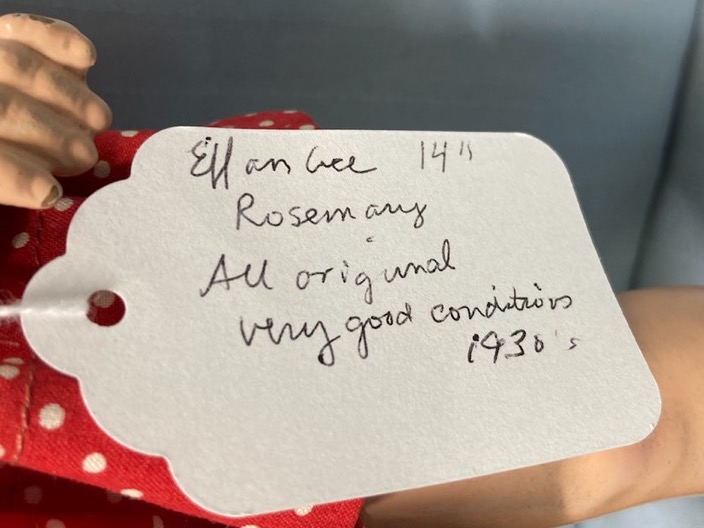 Effanbee 14"
Rosemary
All original
very good conditions
1930's